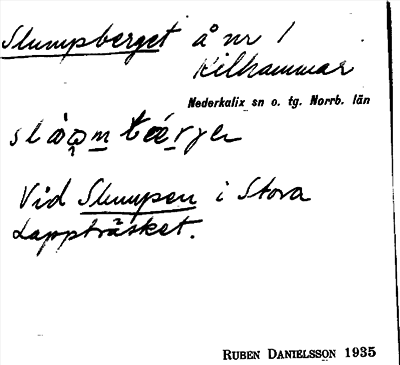 Slumpsberget å nr 1
Kilhammar
Nederkalix sn o. tg. Norrb. län
Vid Slumpen i Stora
Lappträsket.
RUBEN DANIELSSON 1935